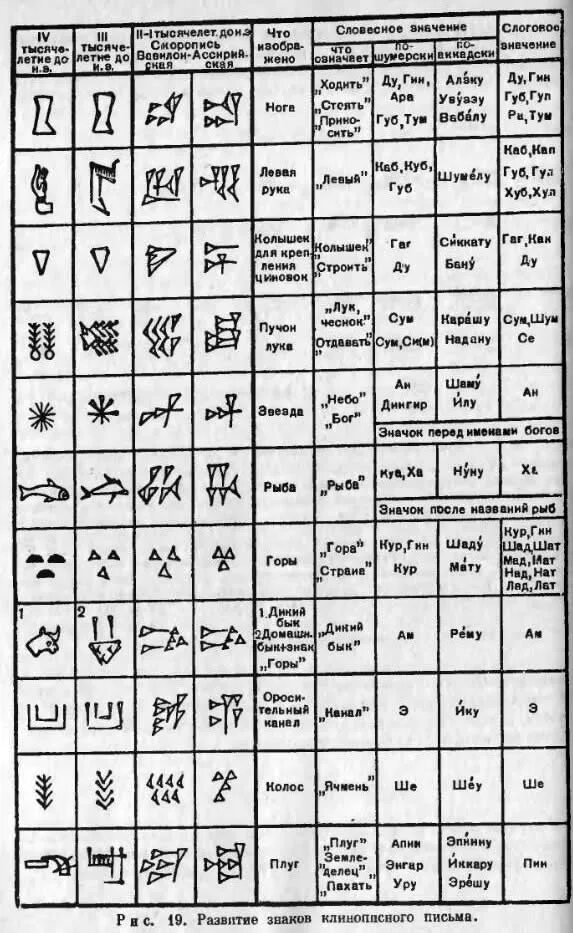 IV
тысяче-
летие до
н.э.
III
тысяче-
летие до
н.э.
II-I тысячелет. до н.э
Скоропись
Вавилон-
ская
Ассирий-
ская
Что
изобра-
жено
Словесное значение
что
означает
по-
шумерски
по-
аккадски
Слоговое
значение
Нога
„Ходить"
„Стоять"
„Прино-
сить"
Ду, Гин,
Ара
Губ, Тум
Ала́ку
Уву́азу
Ваба́лу
Ду, Гин
Губ, Гуп
Ра, Тум
Левая
рука
„Левый"
Каб, Куб,
Губ
Шуме́лу
Каб, Кап
Губ, Гуп
Хуб, Хуп
Колышек
для креп
ления
циновок
„Колышек"
„Строить"
Гаг
Ду
Си́ккату
Бану́
Гаг, Как
Ду
Пучок
лука
„Лук,
чеснок"
„Отдавать"
Сум
Сум, Си(м)
Кара́шу
Надану
Сум, Шум
Се
Звезда
„Небо"
„Бог"
Ан
Дингир
Шаму́
И́лу
Ан
Значок перед именами богов
Рыба
„Рыба"
Куа, Ха
Ну́ну
Ха
Значок после названий рыб
Горы
„Гора"
„Страна"
Кур, Гин
Кур
Шаду́
Ма́ту
Кур, Гин
Шад, Шат
Мад, Мат
Над, Нат
Лад, Лат
1
2
1. Дикий
бык
2 Домашн.
бык+знак
„Горы"
„Дикий
бык"
Ам
Ре́му
Ам
Ороси-
тельный
канал
„Канал"
Э
И́ку
Э
Колос
„Ячмень"
Ше
Ше́у
Ше
Плуг
„Плуг"
„Земле-
делец"
„Пахать"
Апин
Энгар
Уру
Эпи́нну
И́ккару
Эре́шу
Пин
Рис. 19. Развитие знаков клинописного письма.